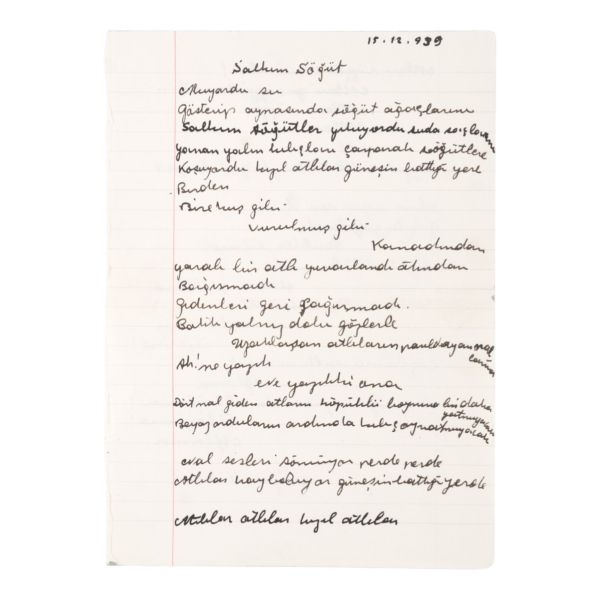 15.12.939
Salkım Söğüt
Akıyordu su
Gösterip aynasında söğüt ağaçlarını
Salkım söğütler yıkıyordu suda saçlarını
yanan yalın kılıçları çarparak söğütlere
Koşuyordu kızıl atlılar güneşin battığı yere
Birden
Bire kuş gibi
vurulmuş gibi
Kanadından
yaralı bir atlı yuvarlandı atından
Bağırmadı
gidenleri geri çağırmadı.
Baktı yalnız dolu gözlerle
Uzaklaşan atlıların parıldayan nallarına
Ah! ne yazık
ne yazık ki ona
Dört nal giden atların köpüklü boynuna bir daha yatmıyacak
Beyaz orduların ardında kılıç oynatmıyacak
Nal sesleri sönüyor perde perde
Atlılar kayboluyor güneşin battığı yerde
Atlılar atlılar kızıl atlılar